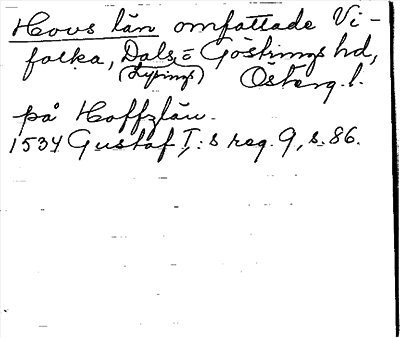 Hovs län omfattade Vi-
folka, Dals, = Göstrings hd,
(Lysings) Österg. l.
på Hoffzlän.
1534 Gustaf I:s reg. 9, s. 86.